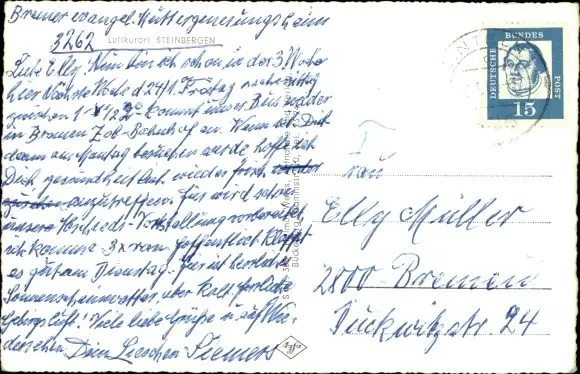 Bremer evangel. Müttergenesungsheim
3262
Luftkurort STEINBERGEN
Liebe Elly! Nun bin ich schon in der 3. Woche
hier. Nächste Woche d. 24/1. Freitag nachmittag
zwischen 1 - 1/2 2° kommt unser Bus wieder
in Bremen Zob-Bahnhof an. Wenn ich Dich
dann am Montag besuchen werde hoffe ich
Dich gesundheitl. wieder frisch
anzutreffen. Hier wird schon
unsere Abschieds-Vorstellung vorbereitet,
ich komme 3x ran hoffentlich klappt
es gut am Dienstag. Hier ist herrliches
Sonnenscheinwetter aber kalt herrliche
Gebirgsluft. Viele liebe Grüße u. auf Wie-
dersehen Dein Lieschen Siemers
DEUTSCHE BUNDESPOST
15
Frau
Elly Müller
2800 Bremen
Duckwitzstr. 24